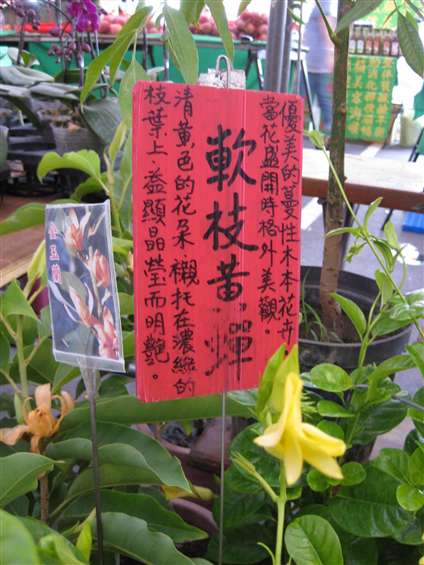 優美的蔓性木本花卉
當花盛開時格外美觀。
軟枝黃蟬
清黃色的花朵,襯托在濃綠的
枝葉上,益顯晶瑩而明艷。
金玉蘭